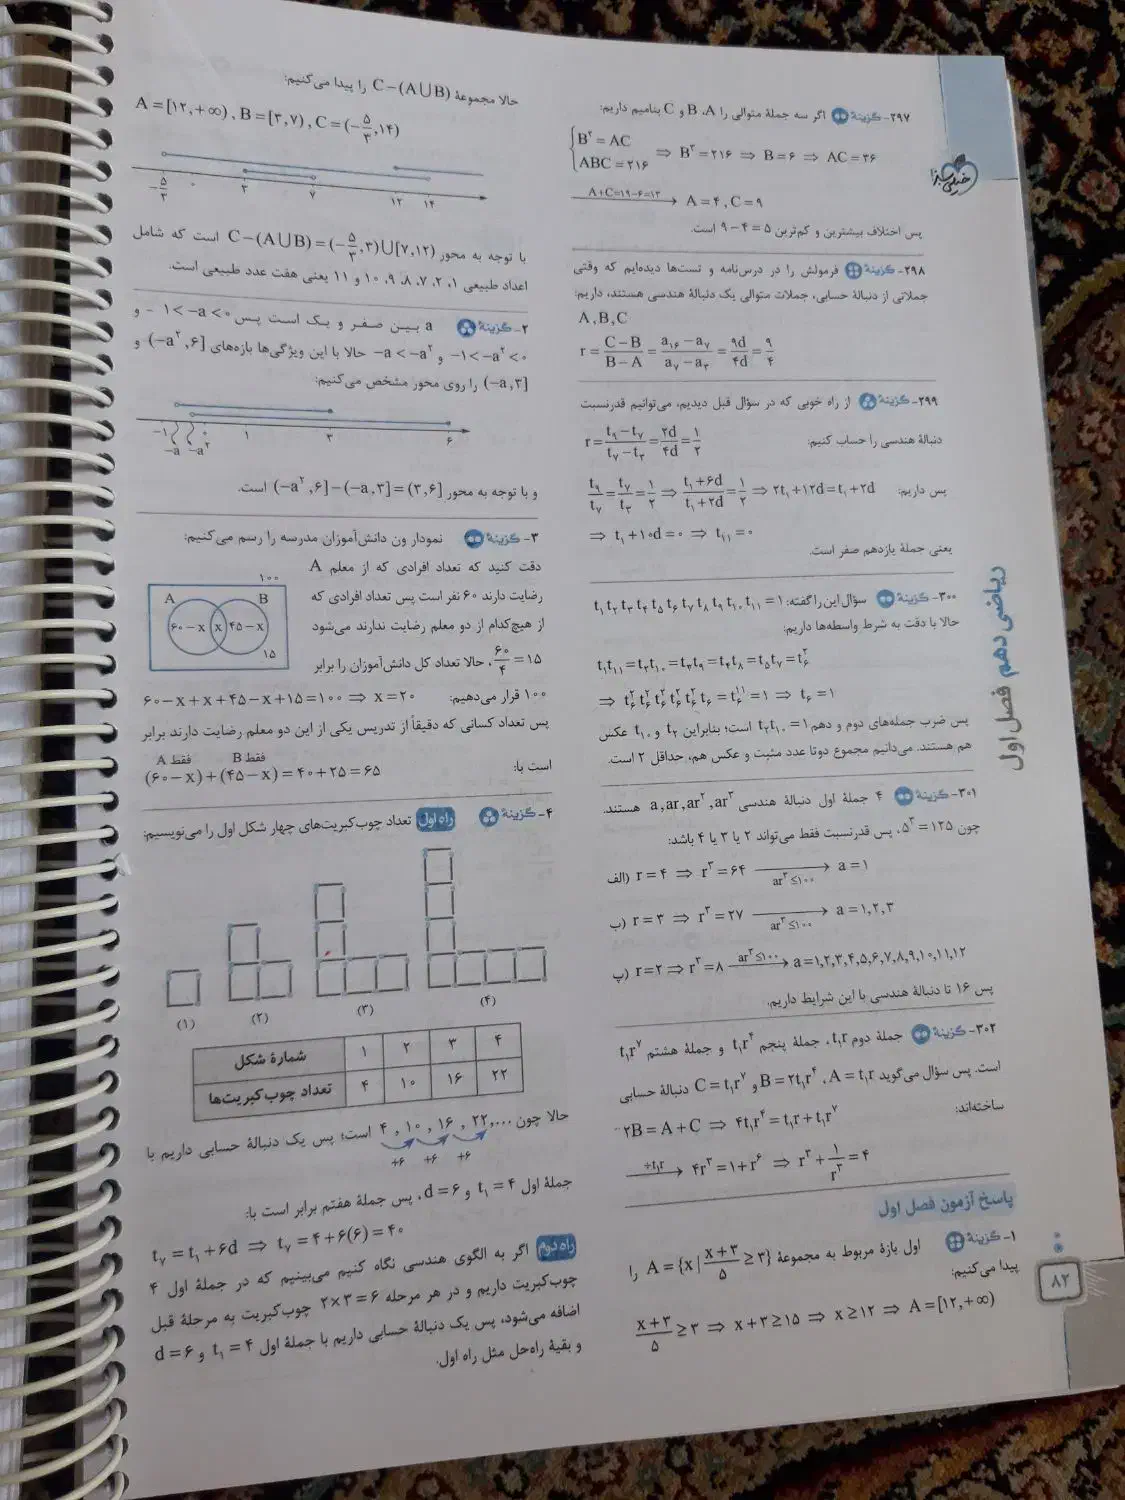 ۲۹۷- گزینهٔ اگر سه جملهٔ متوالی را B ،A و C بنامیم داریم:
{B² = AC
ABC = ۲۱۶ ⇒ B³ = ۲۱۶ ⇒ B = ۶ ⇒ AC = ۳۶
A+C=۱۹−۶=۱۳ → A = ۴ , C = ۹
پس اختلاف بیشترین و کم‌ترین ۵ = ۴ − ۹ است.
۲۹۸- گزینهٔ فرمولش را در درس‌نامه و تست‌ها دیده‌ایم که وقتی
جملاتی از دنبالهٔ حسابی، جملات متوالی یک دنبالهٔ هندسی هستند، داریم:
A , B , C
r = (C − B)/(B − A) = (a₁₶ − a₇)/(a₇ − a₃) = ۹d/۴d = ۹/۴
۲۹۹- گزینهٔ از راه خوبی که در سؤال قبل دیدیم، می‌توانیم قدرنسبت
دنبالهٔ هندسی را حساب کنیم: r = (t₉ − t₇)/(t₇ − t₃) = ۲d/۴d = ۱/۲
پس داریم: t₉/t₇ = t₇/t₃ = ۱/۲ ⇒ (t₁ + ۶d)/(t₁ + ۲d) = ۱/۲ ⇒ ۲t₁ + ۱۲d = t₁ + ۲d
⇒ t₁ + ۱۰d = ۰ ⇒ t₁₁ = ۰
یعنی جملهٔ یازدهم صفر است.
۳۰۰- گزینهٔ سؤال این را گفته: t₁t₂t₃t₄t₅t₆t₇t₈t₉t₁₀t₁₁ = ۱
حالا با دقت به شرط واسطه‌ها داریم:
t₁t₁₁ = t₂t₁₀ = t₃t₉ = t₄t₈ = t₅t₇ = t₆²
⇒ t₆² t₆² t₆² t₆² t₆² t₆ = t₆¹¹ = ۱ ⇒ t₆ = ۱
پس ضرب جمله‌های دوم و دهم t₂t₁₀ = ۱ است؛ بنابراین t₂ و t₁₀ عکس
هم هستند. می‌دانیم مجموع دوتا عدد مثبت و عکس هم، حداقل ۲ است.
۳۰۱- گزینهٔ ۴ جملهٔ اول دنبالهٔ هندسی a, ar, ar², ar³ هستند.
چون ۵³ = ۱۲۵، پس قدرنسبت فقط می‌تواند ۲ یا ۳ یا ۴ باشد:
الف) r = ۴ ⇒ r³ = ۶۴ → (ar³ ≤ ۱۰۰) a = ۱
ب) r = ۳ ⇒ r³ = ۲۷ → (ar³ ≤ ۱۰۰) a = ۱, ۲, ۳
پ) r = ۲ ⇒ r³ = ۸ → (ar³ ≤ ۱۰۰) a = ۱,۲,۳,۴,۵,۶,۷,۸,۹,۱۰,۱۱,۱۲
پس ۱۶ تا دنبالهٔ هندسی با این شرایط داریم.
۳۰۲- گزینهٔ جملهٔ دوم t₁r، جملهٔ پنجم t₁r⁴ و جملهٔ هشتم t₁r⁷
است. پس سؤال می‌گوید A = t₁r، B = ۲t₁r⁴ و C = t₁r⁷ دنبالهٔ حسابی
ساخته‌اند: ۲B = A + C ⇒ ۴t₁r⁴ = t₁r + t₁r⁷
÷t₁r → ۴r³ = ۱ + r⁶ ⇒ r³ + ۱/r³ = ۴
پاسخ آزمون فصل اول
۱- گزینهٔ اول بازهٔ مربوط به مجموعهٔ A = {x | (x+۳)/۵ ≥ ۳} را
پیدا می‌کنیم:
(x+۳)/۵ ≥ ۳ ⇒ x + ۳ ≥ ۱۵ ⇒ x ≥ ۱۲ ⇒ A = [۱۲, +∞)
حالا مجموعهٔ C − (A∪B) را پیدا می‌کنیم:
A = [۱۲, +∞) , B = [۳, ۷) , C = (−۵/۳, ۱۴)
−۵/۳ ۰ ۳ ۷ ۱۲ ۱۴
با توجه به محور C − (A∪B) = (−۵/۳, ۳)∪[۷, ۱۲) است که شامل
اعداد طبیعی ۱، ۲، ۷، ۸، ۹، ۱۰ و ۱۱ یعنی هفت عدد طبیعی است.
۲- گزینهٔ a بین صفر و یک است پس −۱ < −a < ۰ و
−۱ < −a² < ۰ و −a < −a² حالا با این ویژگی‌ها بازه‌های (−a², ۶] و
(−a, ۳] را روی محور مشخص می‌کنیم:
−۱ −a −a² ۱ ۳ ۶
و با توجه به محور (−a², ۶] − (−a, ۳] = (۳, ۶] است.
۳- گزینهٔ نمودار ون دانش‌آموزان مدرسه را رسم می‌کنیم:
دقت کنید که تعداد افرادی که از معلم A
رضایت دارند ۶۰ نفر است پس تعداد افرادی که
از هیچ‌کدام از دو معلم رضایت ندارند می‌شود
۶۰/۴ = ۱۵، حالا تعداد کل دانش‌آموزان را برابر
۱۰۰
A B
۶۰ − x x ۴۵ − x
۱۵
۱۰۰ قرار می‌دهیم: ۶۰ − x + x + ۴۵ − x + ۱۵ = ۱۰۰ ⇒ x = ۲۰
پس تعداد کسانی که دقیقاً از تدریس یکی از این دو معلم رضایت دارند برابر
فقط A فقط B
است با: (۶۰ − x) + (۴۵ − x) = ۴۰ + ۲۵ = ۶۵
۴- گزینهٔ راه اول تعداد چوب‌کبریت‌های چهار شکل اول را می‌نویسیم:
(۱) (۲) (۳) (۴)
شمارهٔ شکل ۱ ۲ ۳ ۴
تعداد چوب‌کبریت‌ها ۴ ۱۰ ۱۶ ۲۲
حالا چون ۴ , ۱۰ , ۱۶ , ۲۲,... است؛ پس یک دنبالهٔ حسابی داریم با
+۶ +۶ +۶
جملهٔ اول t₁ = ۴ و d = ۶، پس جملهٔ هفتم برابر است با:
t₇ = t₁ + ۶d ⇒ t₇ = ۴ + ۶(۶) = ۴۰
راه دوم اگر به الگوی هندسی نگاه کنیم می‌بینیم که در جملهٔ اول ۴
چوب‌کبریت داریم و در هر مرحله ۲×۳ = ۶ چوب‌کبریت به مرحلهٔ قبل
اضافه می‌شود، پس یک دنبالهٔ حسابی داریم با جملهٔ اول t₁ = ۴ و d = ۶
و بقیهٔ راه‌حل مثل راه اول.
خیلی سبز
ریاضی دهم فصل اول
۸۲